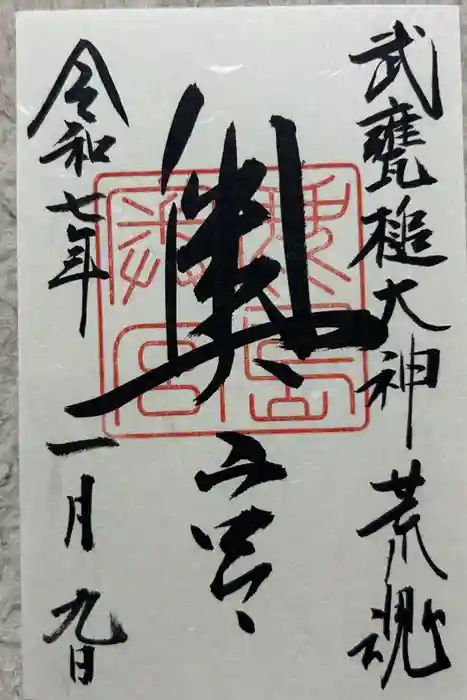 武甕槌大神荒魂
奥宮
令和七年一月九日